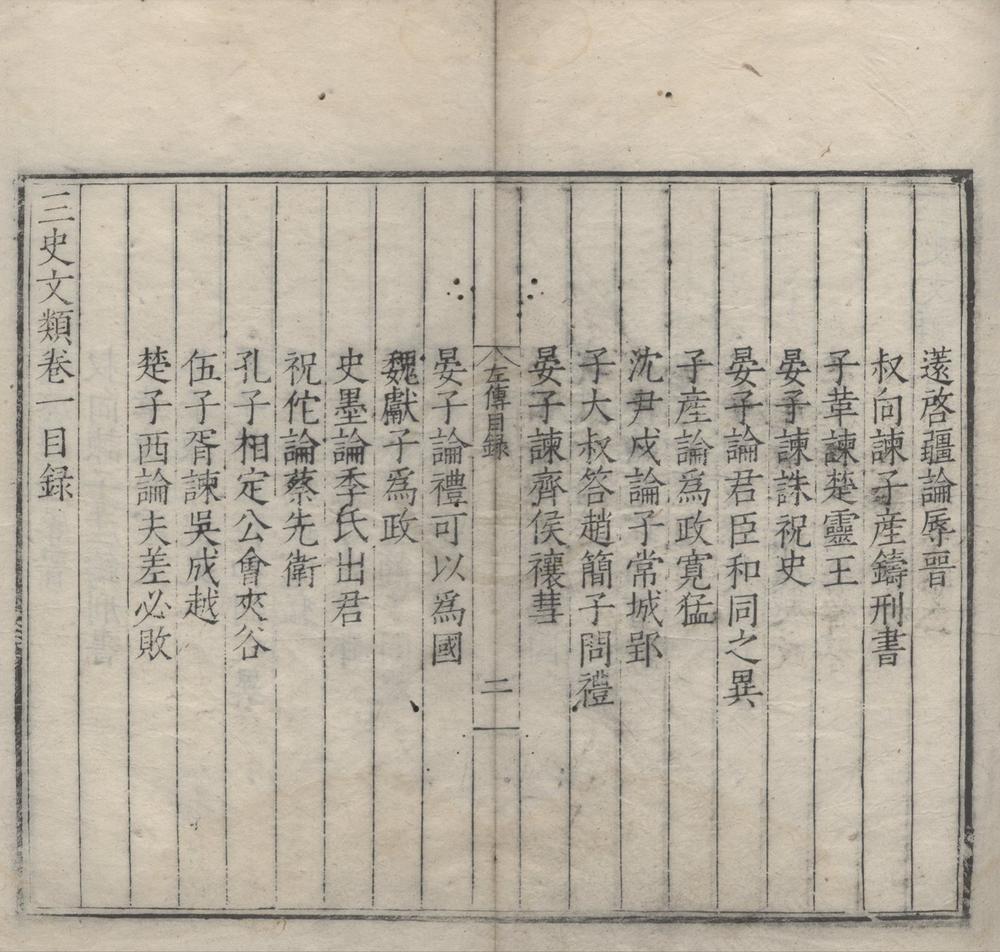 薳啓疆論辱晋
叔向諫子産鑄刑書
子革諫楚靈王
晏子諫誅祝史
晏子論君臣和同之異
子産論爲政寬猛
沈尹戍論子常城郢
子大叔答趙簡子問禮
晏子諫齊侯禳彗
左傳目録
二
晏子論禮可以爲國
魏獻子爲政
史墨論季氏出君
祝佗論蔡先衛
孔子相定公會夾谷
伍子胥諫吳成越
楚子西論夫差必敗
三史文類卷一目録